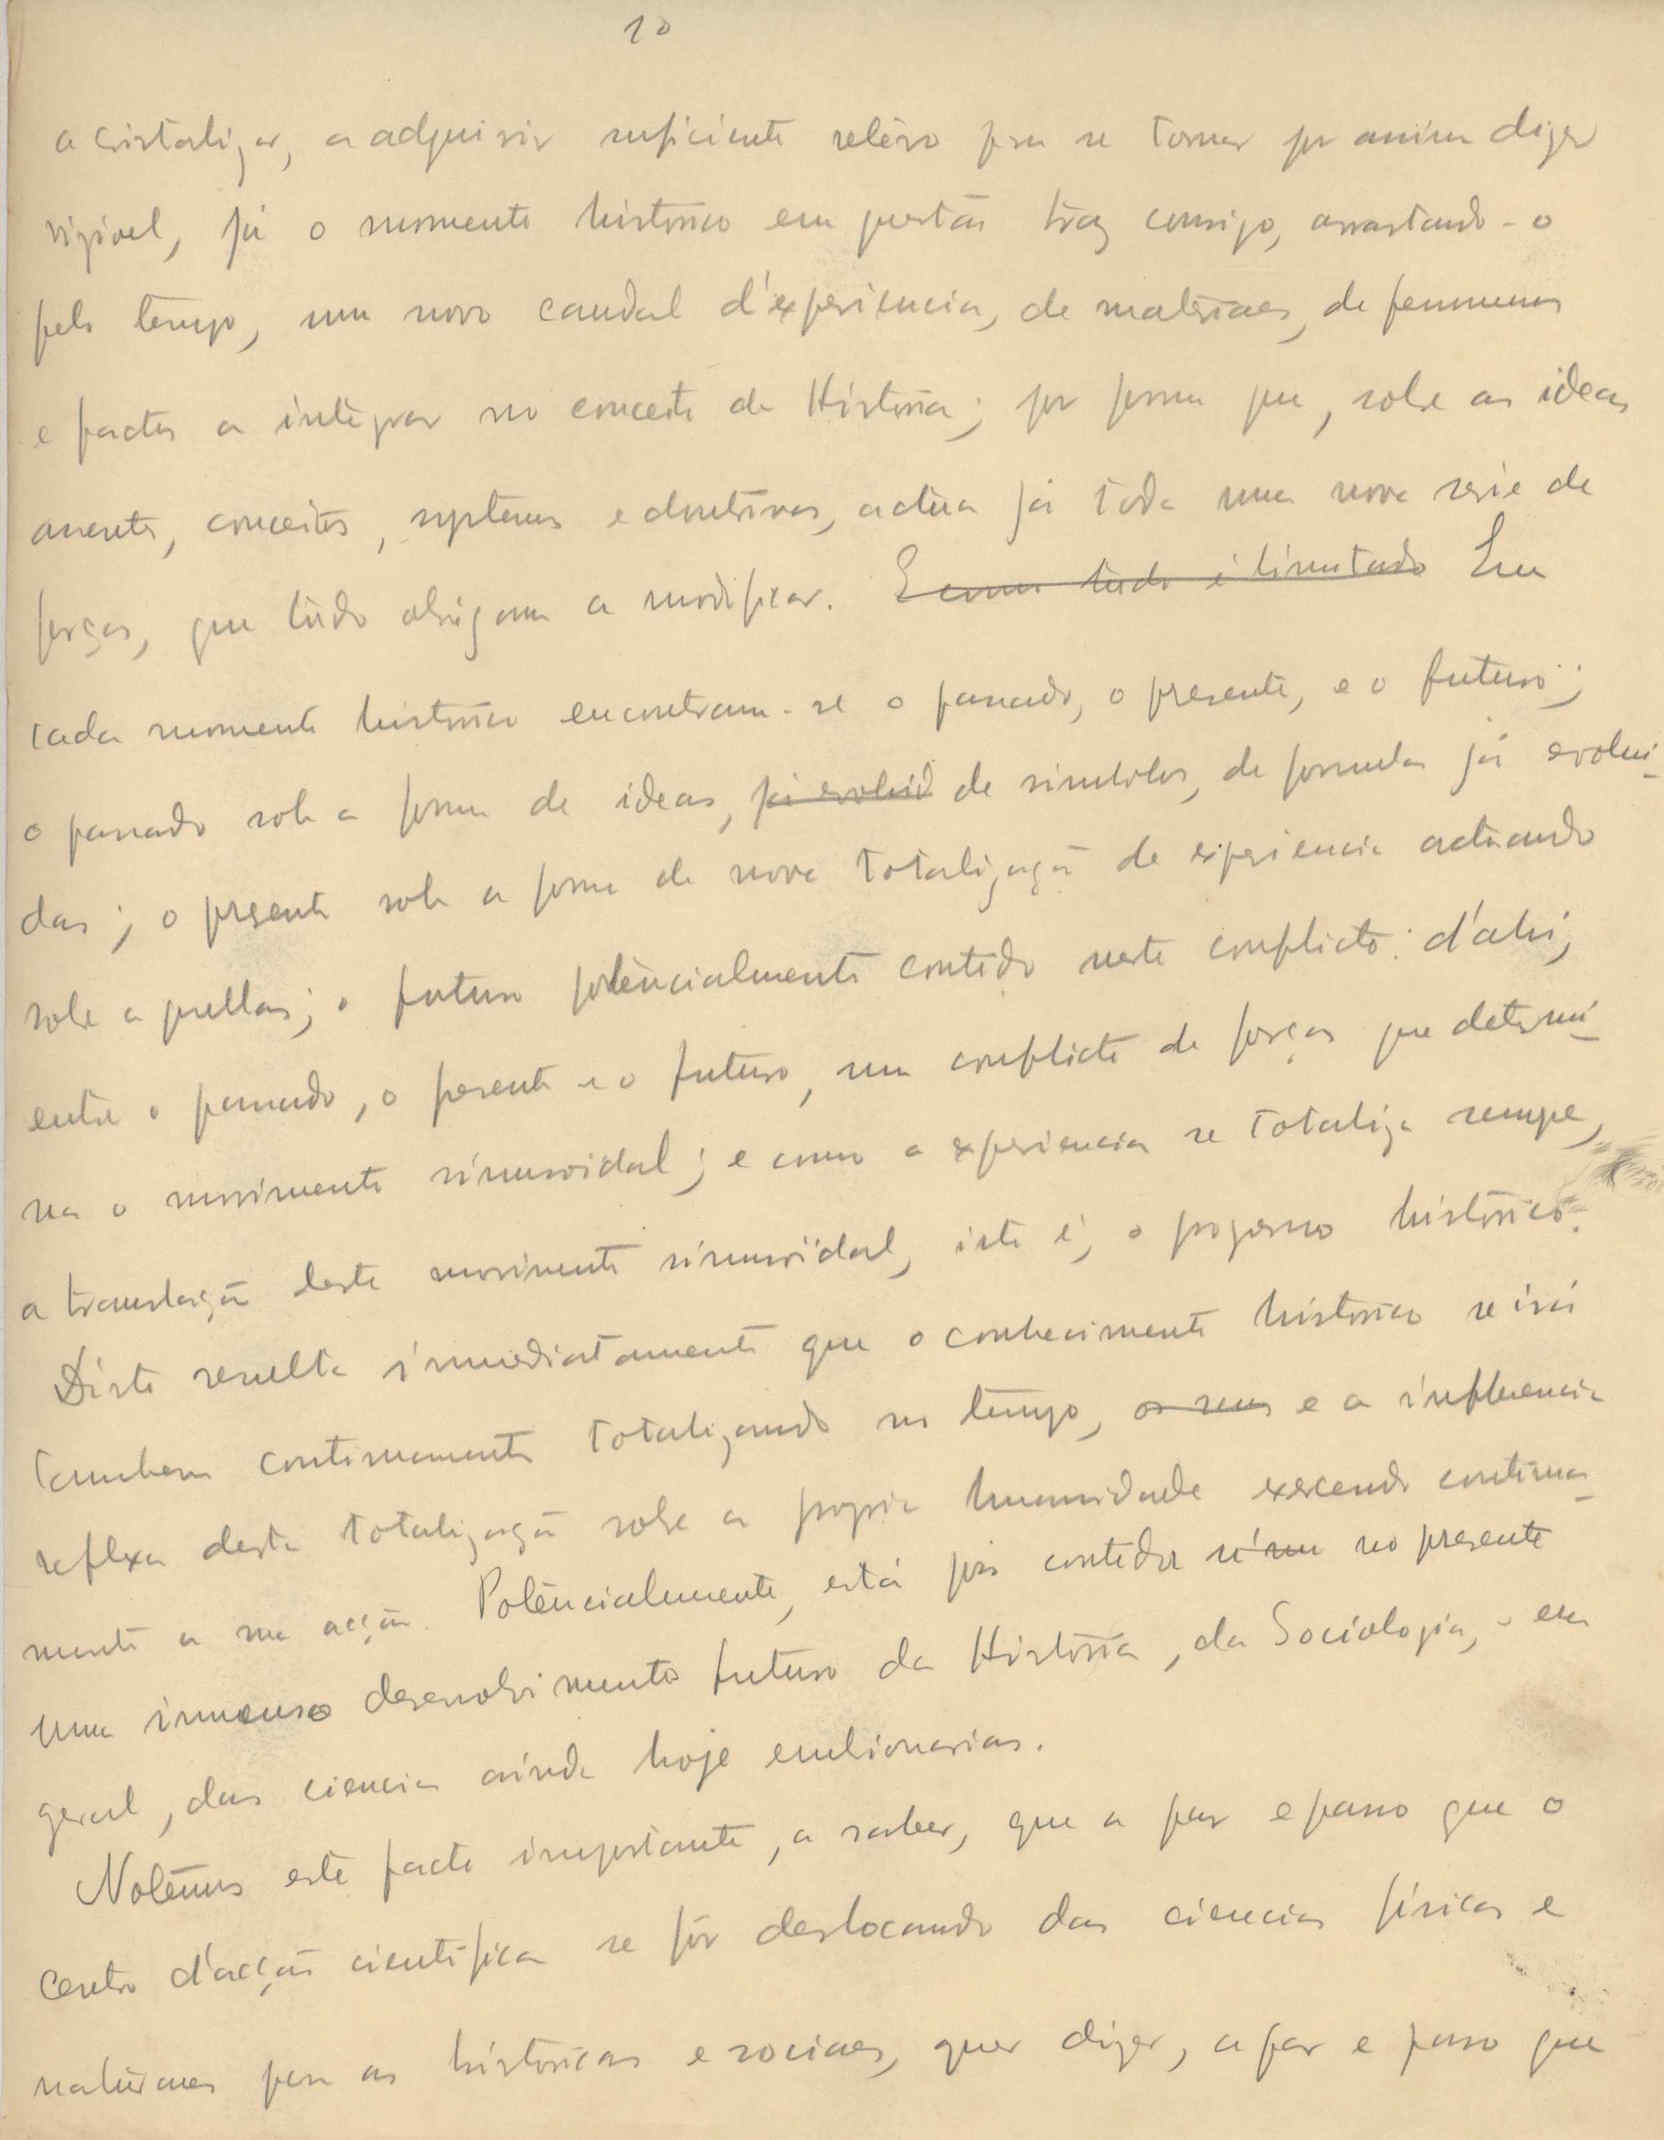 10
a cristalizar, a adquirir suficiente relêvo para se tornar por assim dizer
visivel, já o momento historico em questão traz comsigo, arrastando-o
pelo tempo, um novo caudal d'experiencia, de materiaes, de fenomenos
e factos a integrar no conceito de Historia; por forma que, sobre as ideas
assente, conceitos, systemas e doutrinas, actua já toda uma nova serie de
forças, que tudo obrigam a modificar. E como tudo é limitado Em
cada momento historico encontram-se o passado, o presente, e o futuro;
o passado sob a forma de ideas, já evoluid de simbolos, de formulas já evolui-
das; o presente sob a forma de nova totalização de experiencia actuando
sobre aquellas; o futuro potencialmente contido neste conflicto: d'ahi,
entre o passado, o presente e o futuro, um conflicto de forças que determi-
na o movimento sinusoidal; e como a experiencia se totaliza sempre,
a translação deste movimento sinusoidal, isto é, o progresso historico.
Disto resulta immediatamente que o conhecimento historico se irá
tambem continuamente totalizando no tempo, os seus e a influencia
reflexa desta totalização sobre a propria humanidade exercendo continua-
mente a sua acção. Potencialmente, está pois contido no presente
um immenso desenvolvimento futuro da Historia, da Sociologia, e em
geral, das ciencias ainda hoje embrionarias.
Notemos este facto importante, a saber, que a par e passo que o
centro d'acção cientifica se fôr deslocando das ciencias físicas e
naturaes para as historicas e sociaes, quer dizer, a par e passo que